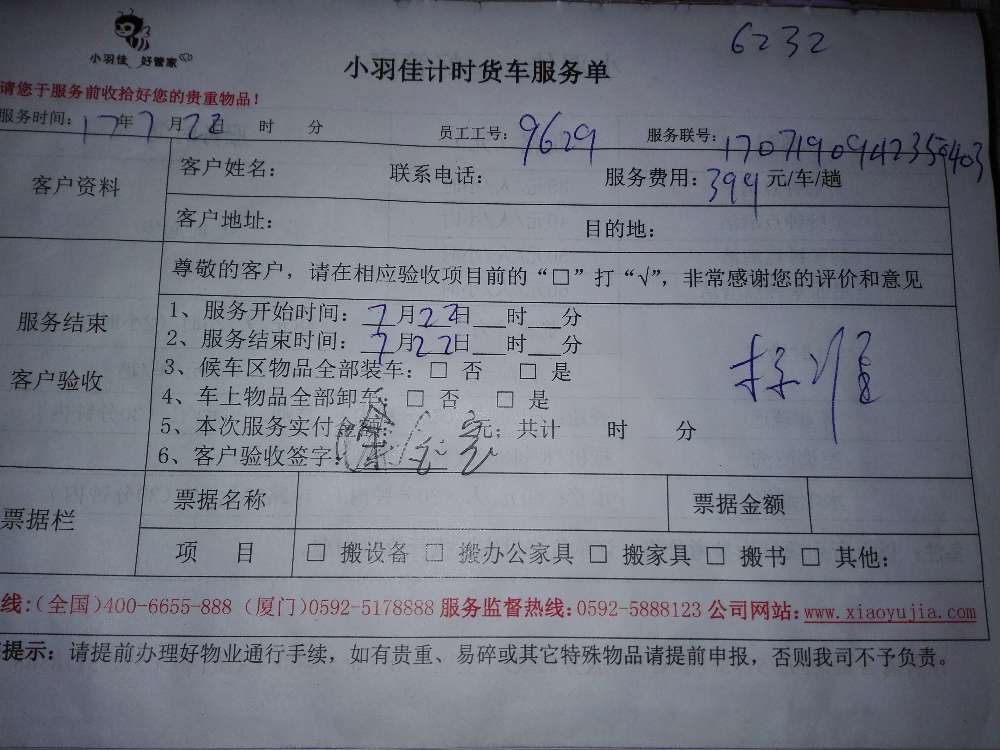 6232
小羽佳 好管家
小羽佳计时货车服务单
请您于服务前收拾好您的贵重物品！
服务时间：17年7月22日 时 分 员工工号：9629 服务联号：
客户资料
客户姓名： 联系电话： 服务费用：399元/车/趟
客户地址： 目的地：
尊敬的客户，请在相应验收项目前的“□”打“√”，非常感谢您的评价和意见
服务结束
客户验收
1、服务开始时间：7月22日___时___分
2、服务结束时间：7月22日___时___分
3、候车区物品全部装车：□ 否 □ 是
4、车上物品全部卸车：□ 否 □ 是
5、本次服务实付金额： 元；共计 时 分
6、客户验收签字：
票据栏
票据名称 票据金额
项 目 □ 搬设备 □ 搬办公家具 □ 搬家具 □ 搬书 □ 其他：
线：（全国）400-6655-888（厦门）0592-5178888 服务监督热线：0592-5888123 公司网站：www.xiaoyujia.com
提示：请提前办理好物业通行手续，如有贵重、易碎或其它特殊物品请提前申报，否则我司不予负责。